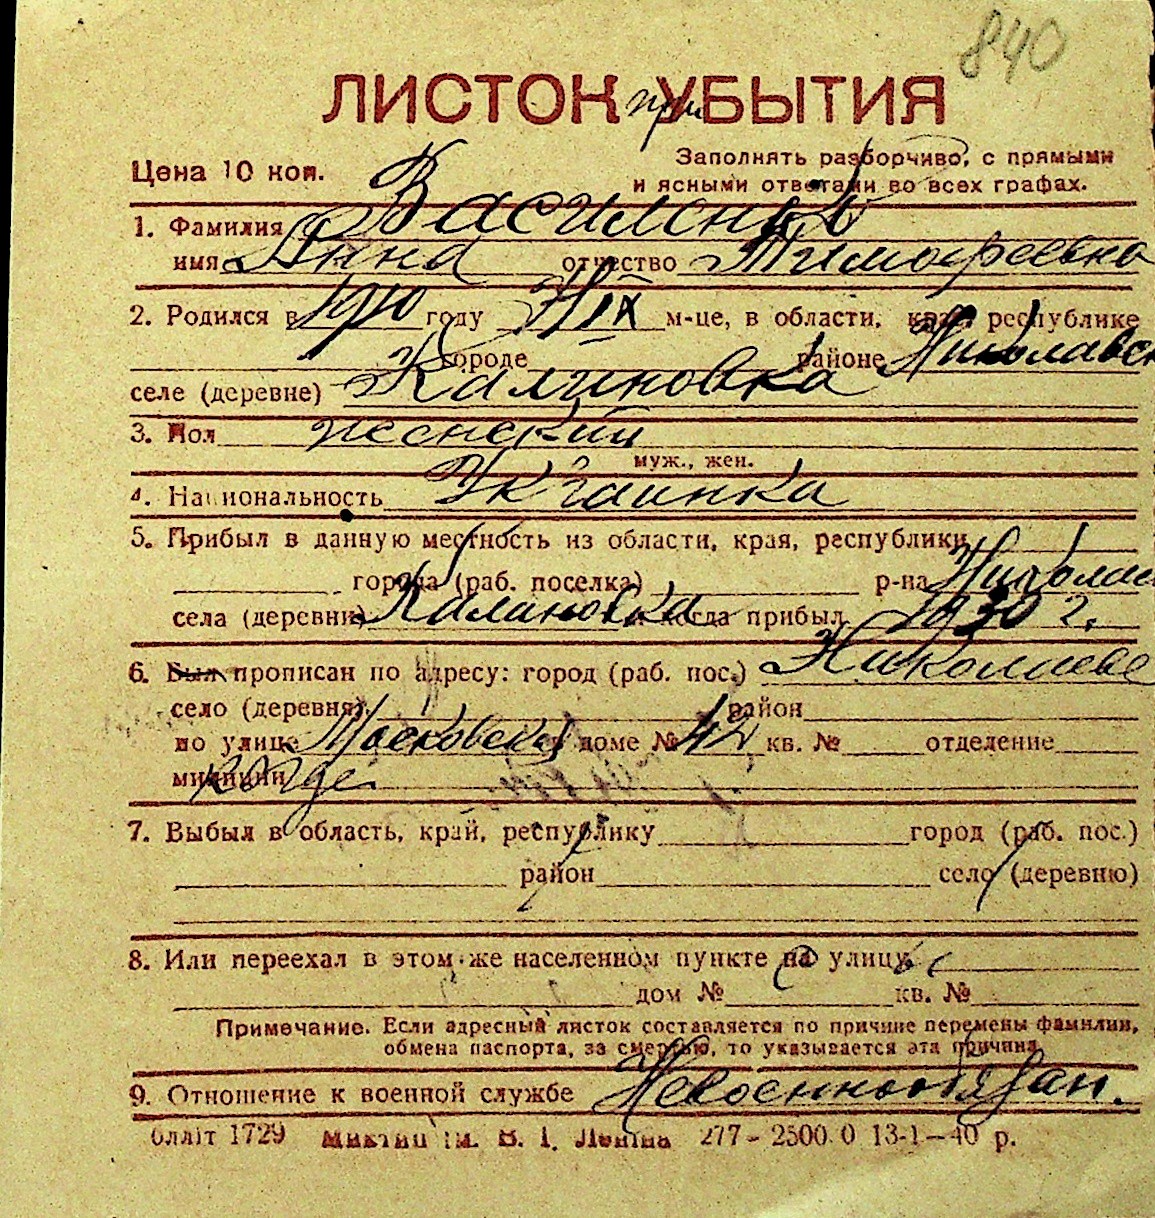 840
ЛИСТОК при УБЫТИЯ
Цена 10 коп.
Заполнять разборчиво, с прямыми
и ясными ответами во всех графах.
1. Фамилия Василенко
имя Анна отчество Тимофеевна
2. Родился в году IX м-це, в области, края, республике
городе районе Николаевск
селе (деревне) Калиновка
3. Пол женский
муж., жен.
4. Национальность Украинка
5. Прибыл в данную местность из области, края, республики
города (раб. поселка) р-на Николаев
села (деревни) Калиновка и когда прибыл 1930 г.
6. Был прописан по адресу: город (раб. пос.) Николаеве
село (деревня) район
по улице Московской доме № 42 кв. № отделение
милиции
7. Выбыл в область, край, республику город (раб. пос.)
район село (деревню)
8. Или переехал в этом же населенном пункте на улицу
дом № кв. №
Примечание. Если адресный листок составляется по причине перемены фамилии,
обмена паспорта, за смертью, то указывается эта причина.
9. Отношение к военной службе Невоеннообязан.
1729 ім. В. І. Леніна 277-2500.0 13-1-40 р.